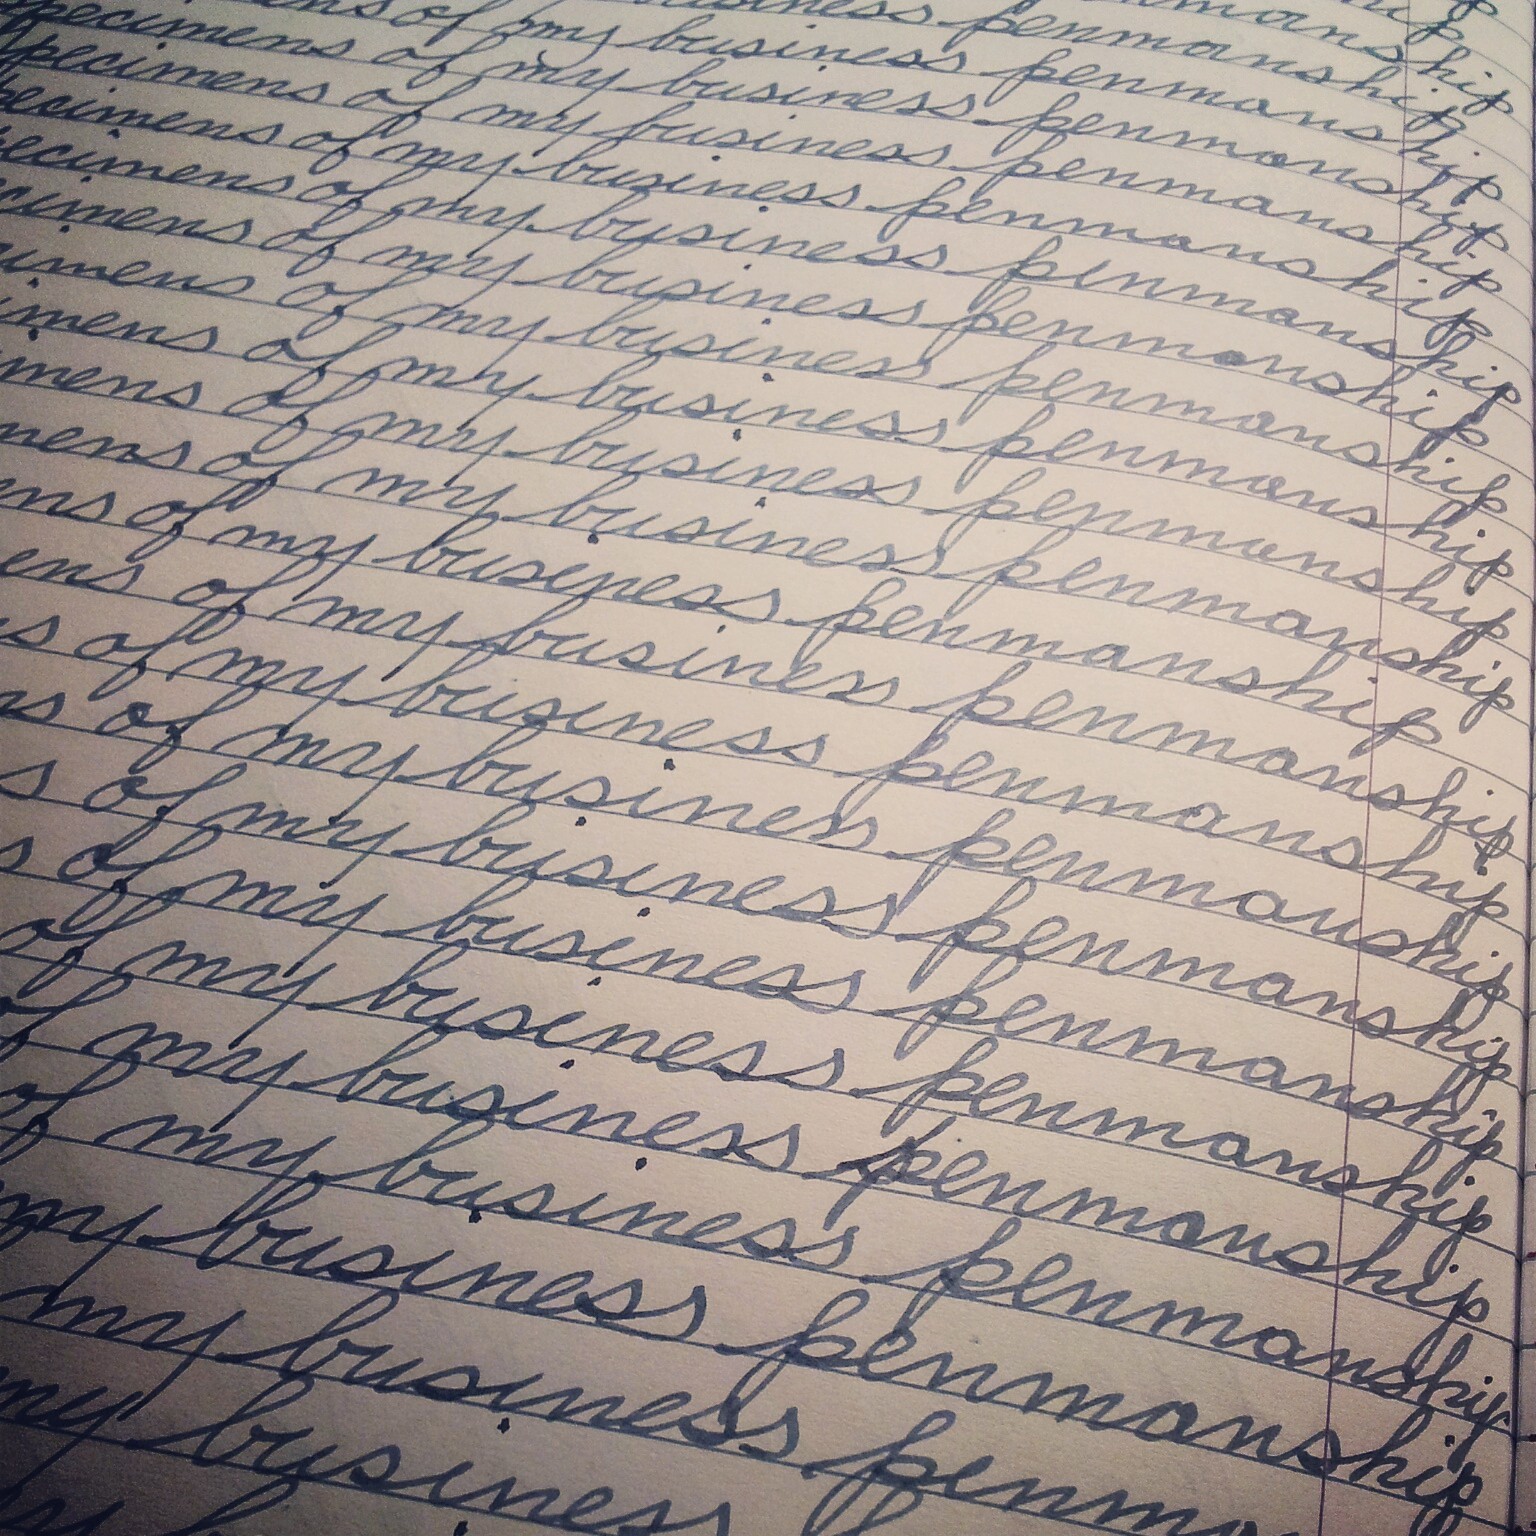 business penmanship
of my business penmanship
specimens of my business penmanship
specimens of my business penmanship
specimens of my business penmanship
specimens of my business penmanship
ecimens of my business penmanship
cimens of my business penmanship
imens of my business penmanship
imens of my business penmanship
mens of my business penmanship
mens of my business penmanship
ens of my business penmanship
ens of my business penmanship
s of my business penmanship
ns of my business penmanship
s of my business penmanship
s of my business penmanship
of my business penmanship
of my business penmanship
of my business penmanship
my business penmanship
my business penm
my business